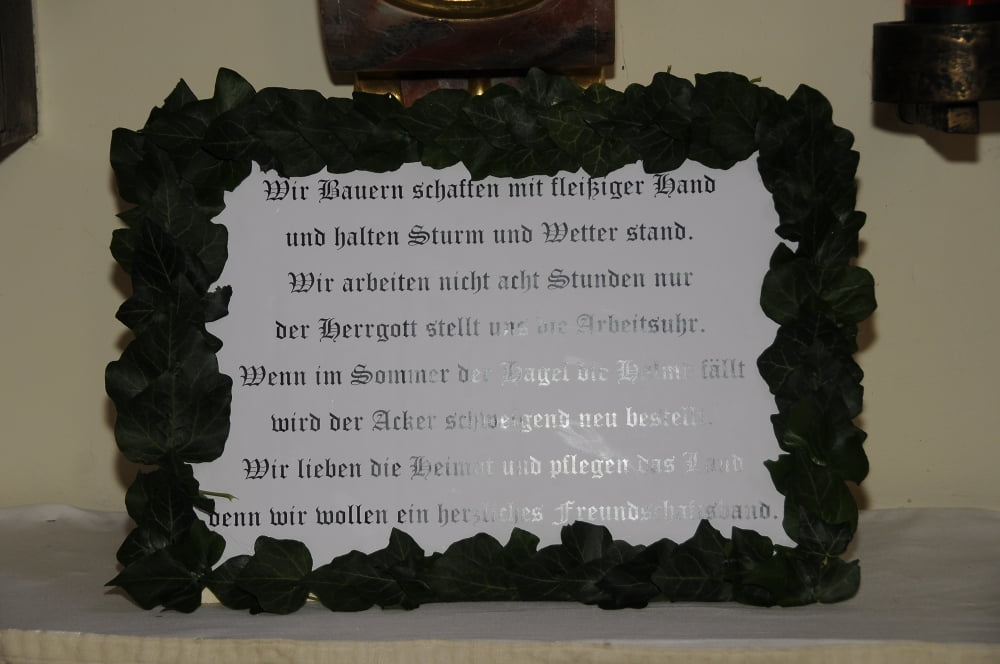 Wir Bauern schaffen mit fleißiger Hand
und halten Sturm und Wetter stand.
Wir arbeiten nicht acht Stunden nur
der Herrgott stellt uns die Arbeitsuhr.
Wenn im Sommer der Hagel die Helme fällt
wird der Acker schweigend neu bestellt.
Wir lieben die Heimat und pflegen das Land
denn wir wollen ein herzliches Freundschaftsband.